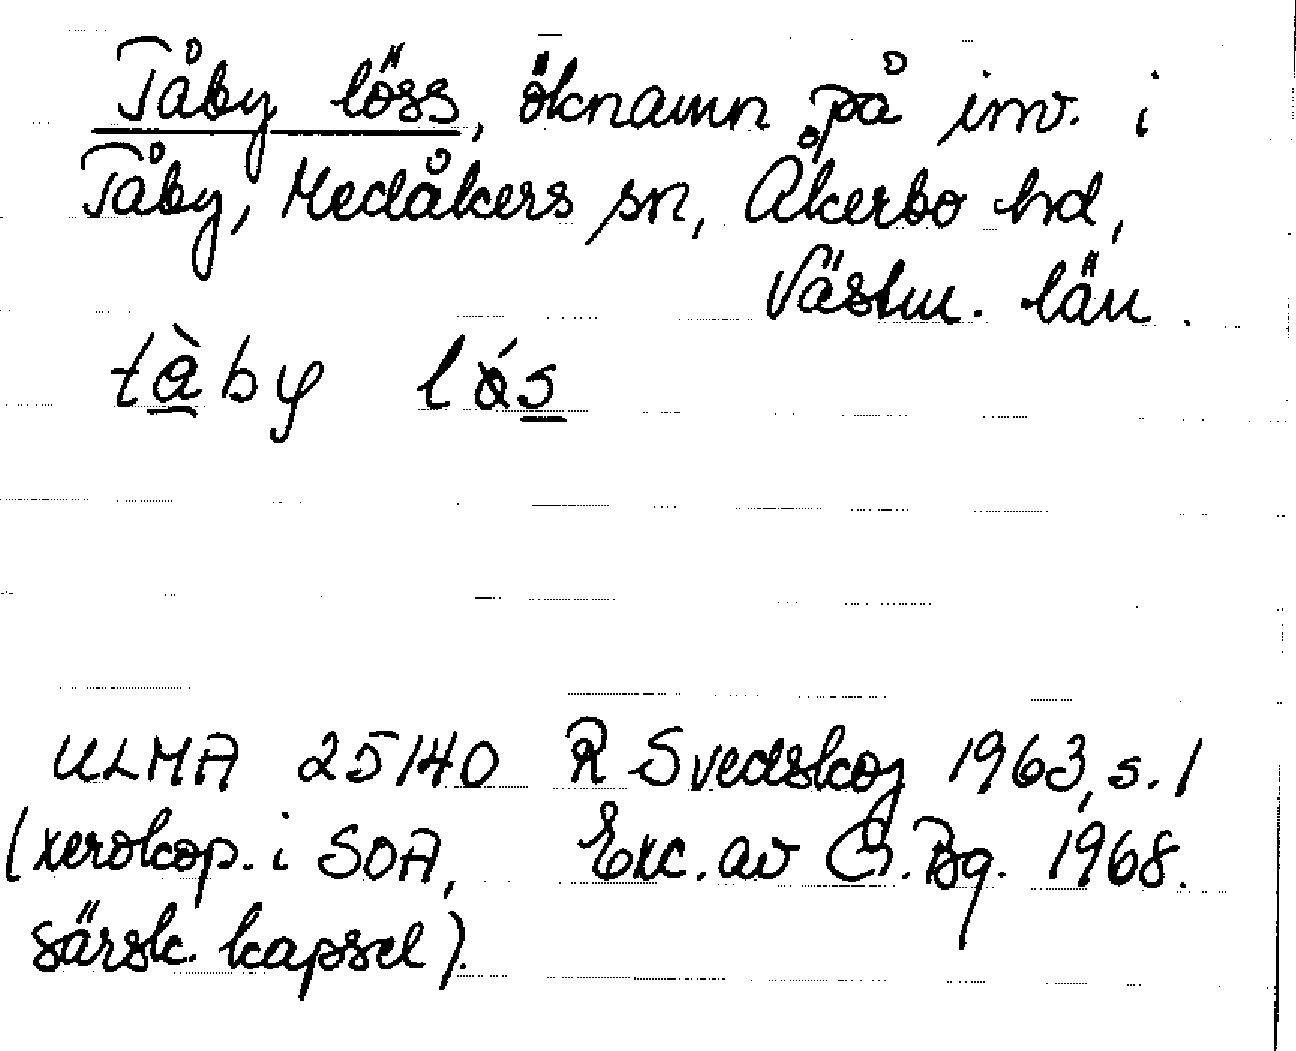 Tåby löss, öknamn på inv. i
Tåby, Medåkers sn, Åkerbo hd,
Västm. län.
tà̱by lǿs̱
ULMA 25140 R Svedskog 1963, s. 1
(xerokop. i SOA, Exc. av G. Bg. 1968.
särsk. kapsel).